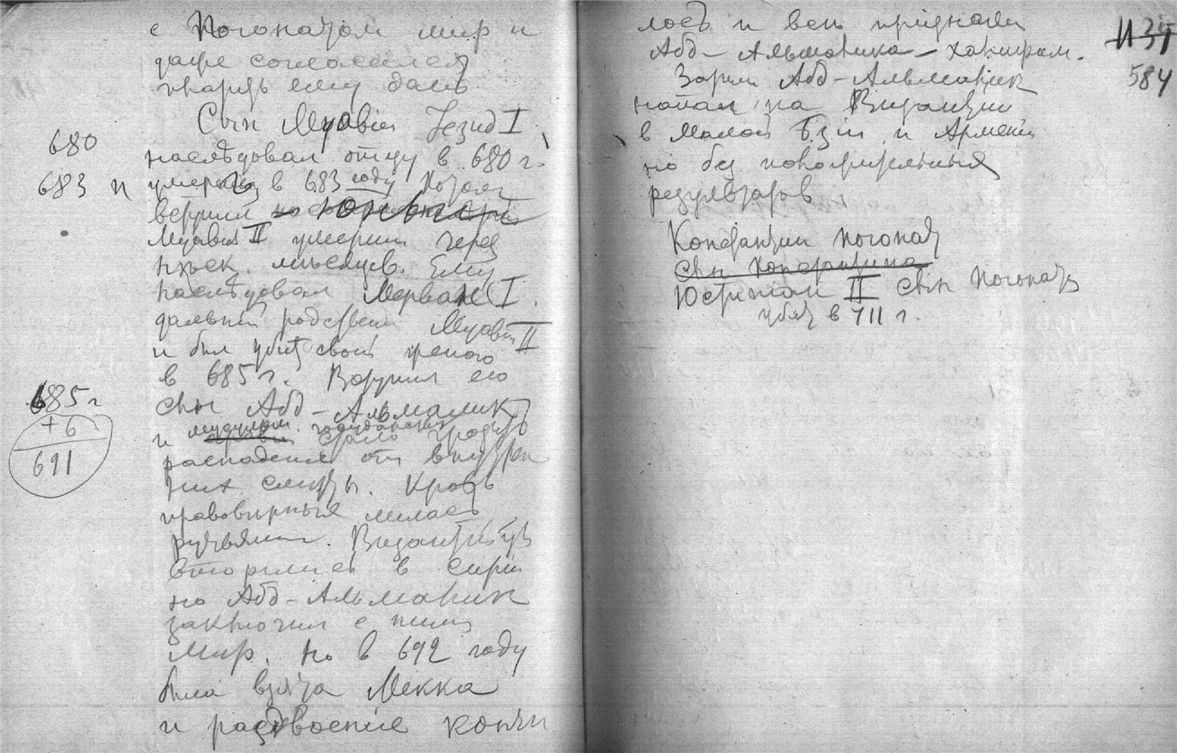 с Погонатом мир и
даже согласился
дань ему дать
Сын Муавии Језид I
680
наследовал отцу в 680 г.
683
и умер в 683 году Потом
вступил юный
Муавия II умерший через
нѣск. месяцев. Ему
наследовал Мерван I
дальний родствен Муавии II
и был убит своей женою
685 г
+6
691
в 685 г. Вступил его
сын Абд-Альмалик
и мусульм. государство стало
распадаться от внутрен
них смут. Кровь
правоверных лилась
ручьями. Византийцы
вторглись в Сирию
но Абд-Альмалик
заключил с ними
мир. Но в 692 году
была взята Мекка
и раздвоение кончи
лось и все признали
Абд-Альмалика - халифом.
1137
584
Затем Абд-Альмалик
напал на Византии
в Малой Азии и Армении
но без положительных
результатов
Константин Погонат
сын Константина
Юстиниан II сын Погоната
убит в 711 г.